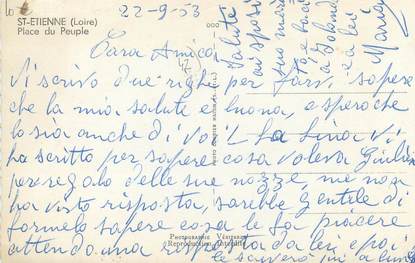 ST-ETIENNE (Loire)
Place du Peuple
22-9-53
Cara Amica
Vi scrivo due righe per farvi sapere
che la mia salute e buona, e spero che
lo sia anche di voi. La Lina vi
ha scritto per sapere cosa voleva Giulia
per regalo delle sue nozze, me non
ha visto risposta, sarebbe gentile di
formelo sapere cosa le fa piacere
attendo una risposta da lei e poi
le scriverà
Salute
ai sposi
suo mari
to e baci
a Ioland
e a lei
Mary
PHOTOGRAPHIE VÉRITABLE
Reproduction Interdite